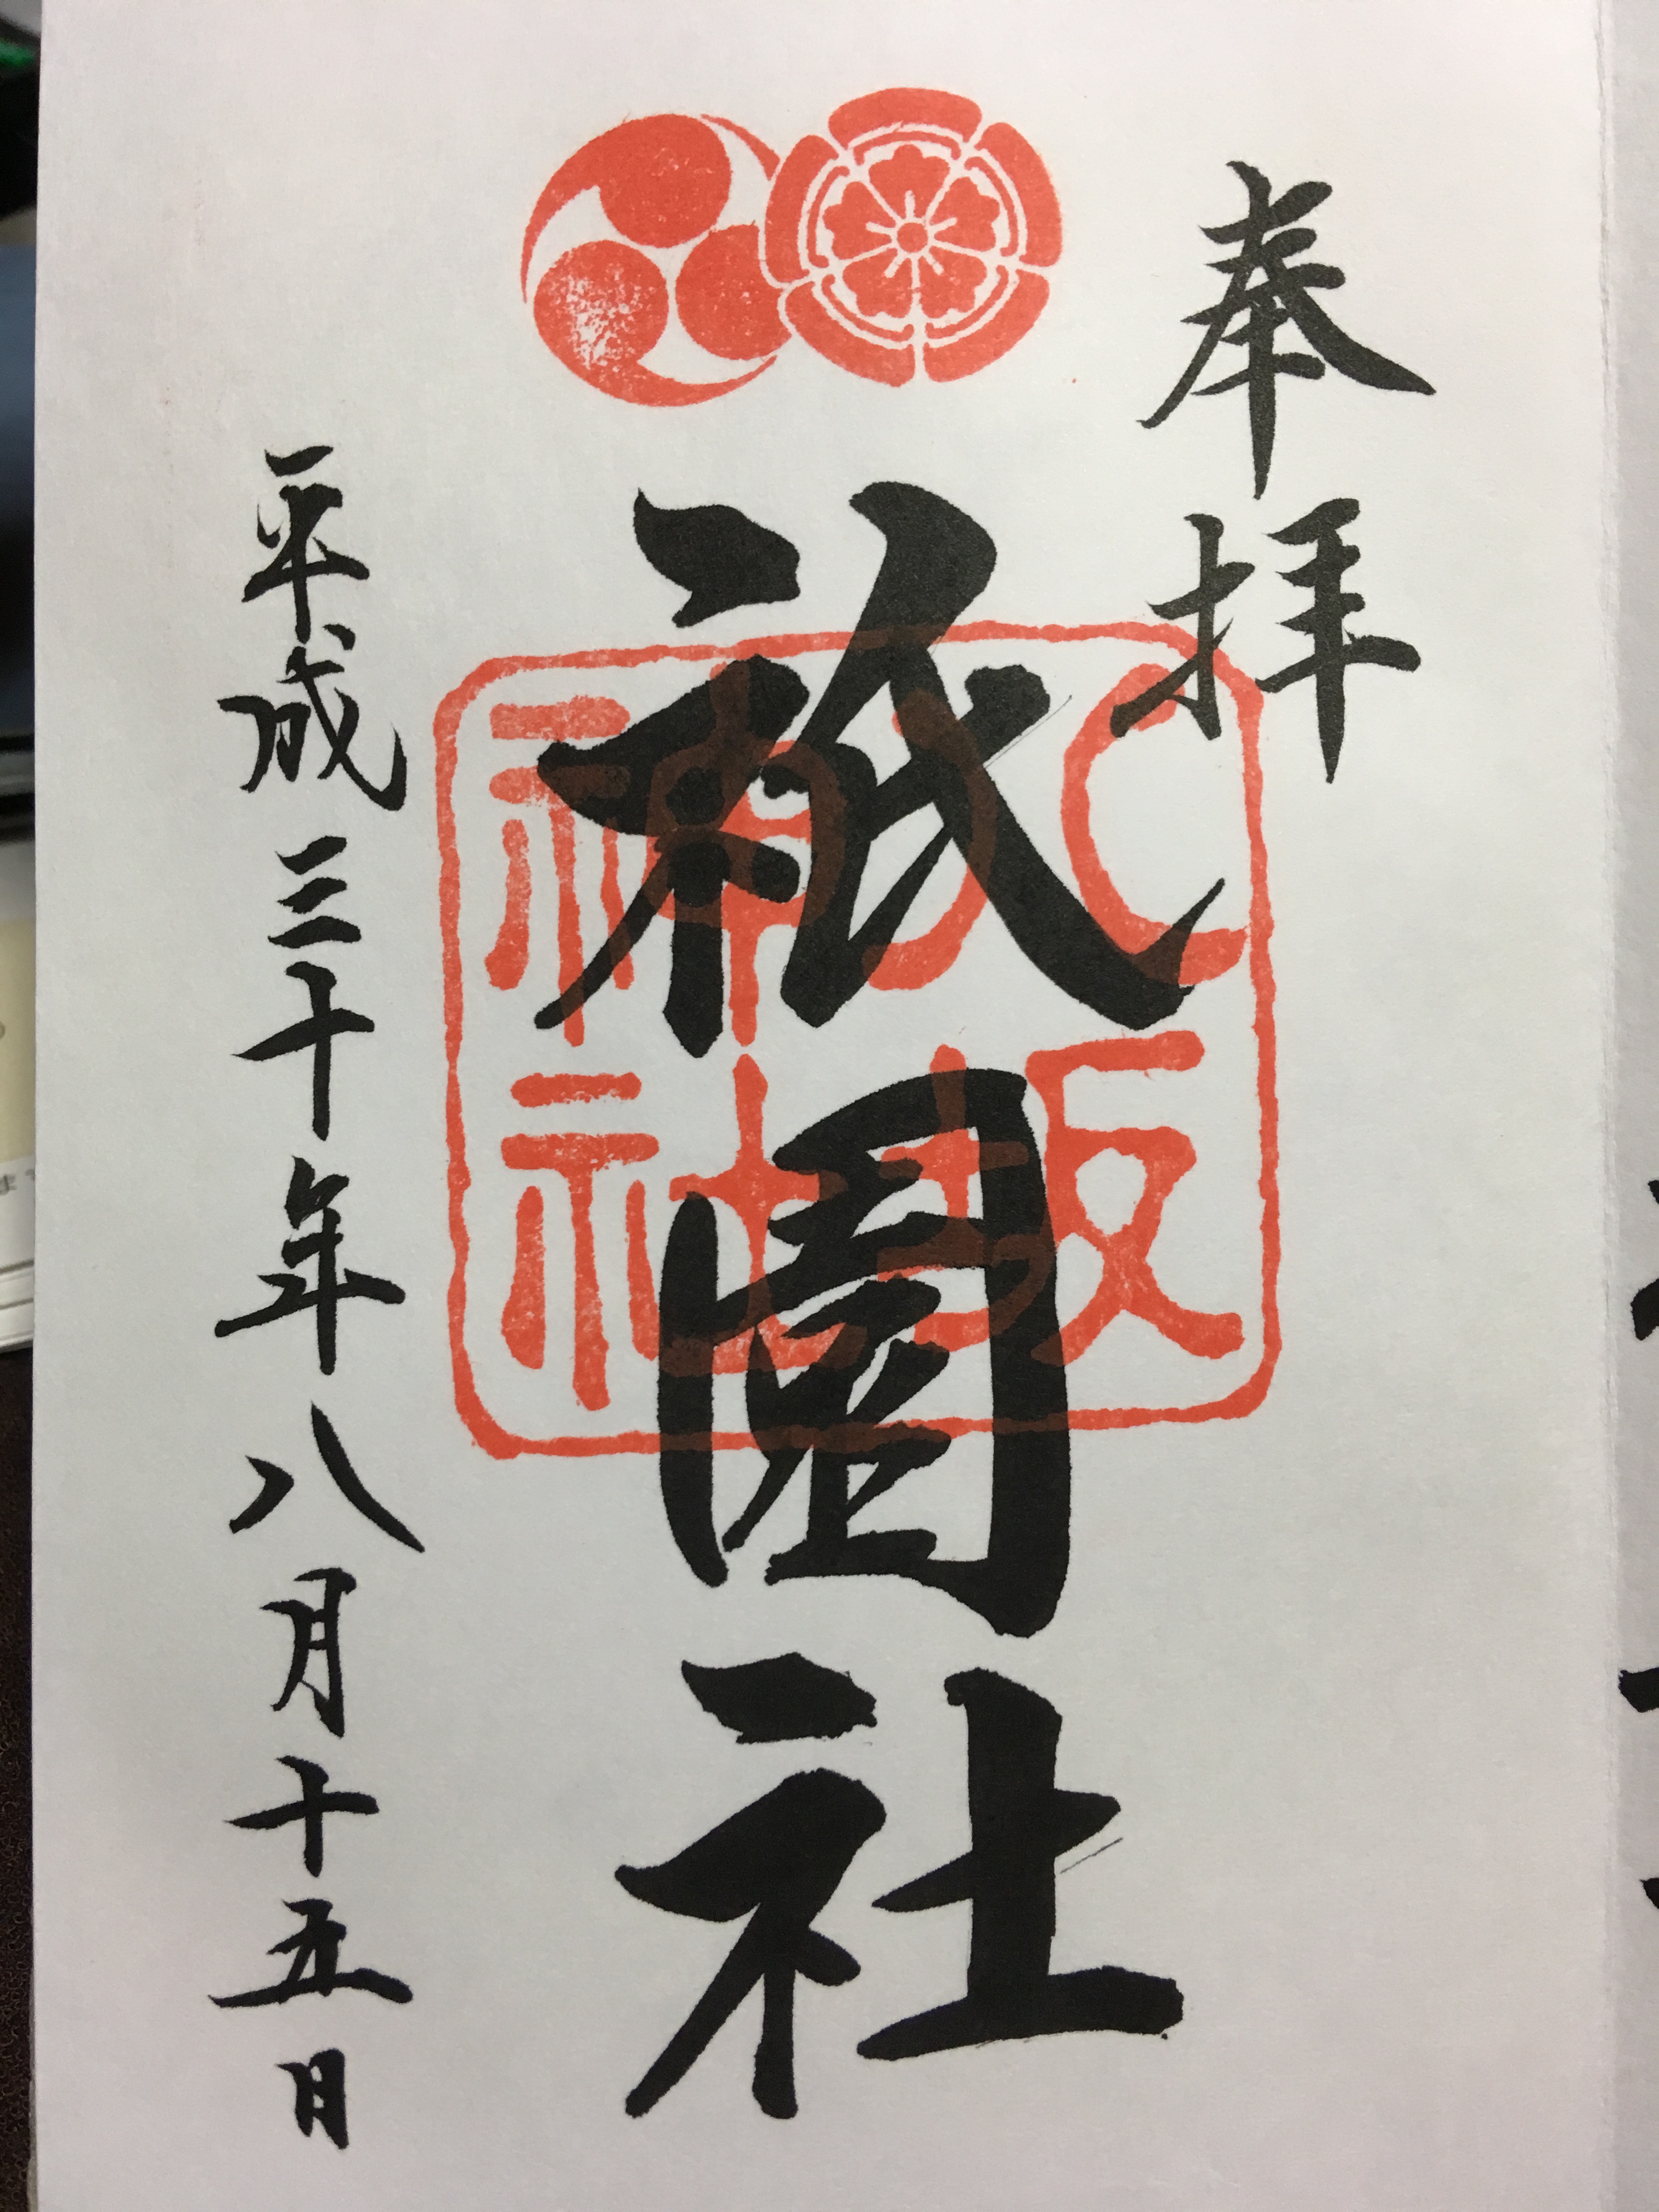 奉拝
祇園社
八坂神社
平成三十年八月十五日